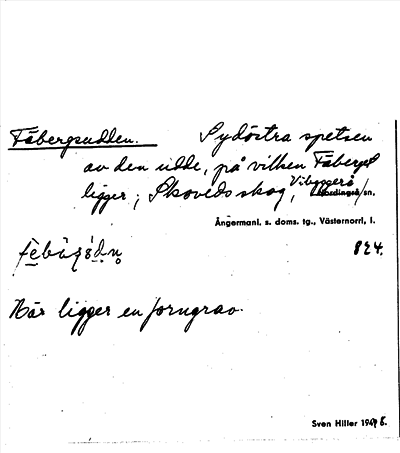 Fäbergsudden. Sydöstra spetsen
av den udde, på vilken Fäberget
ligger; Skoveds skog, Vibyggerå
Nordingrå/sn,
Ångermanl. s. doms. tg., Västernorrl, l.
824.
När ligger en forngrav.
Sven Hiller 1945.